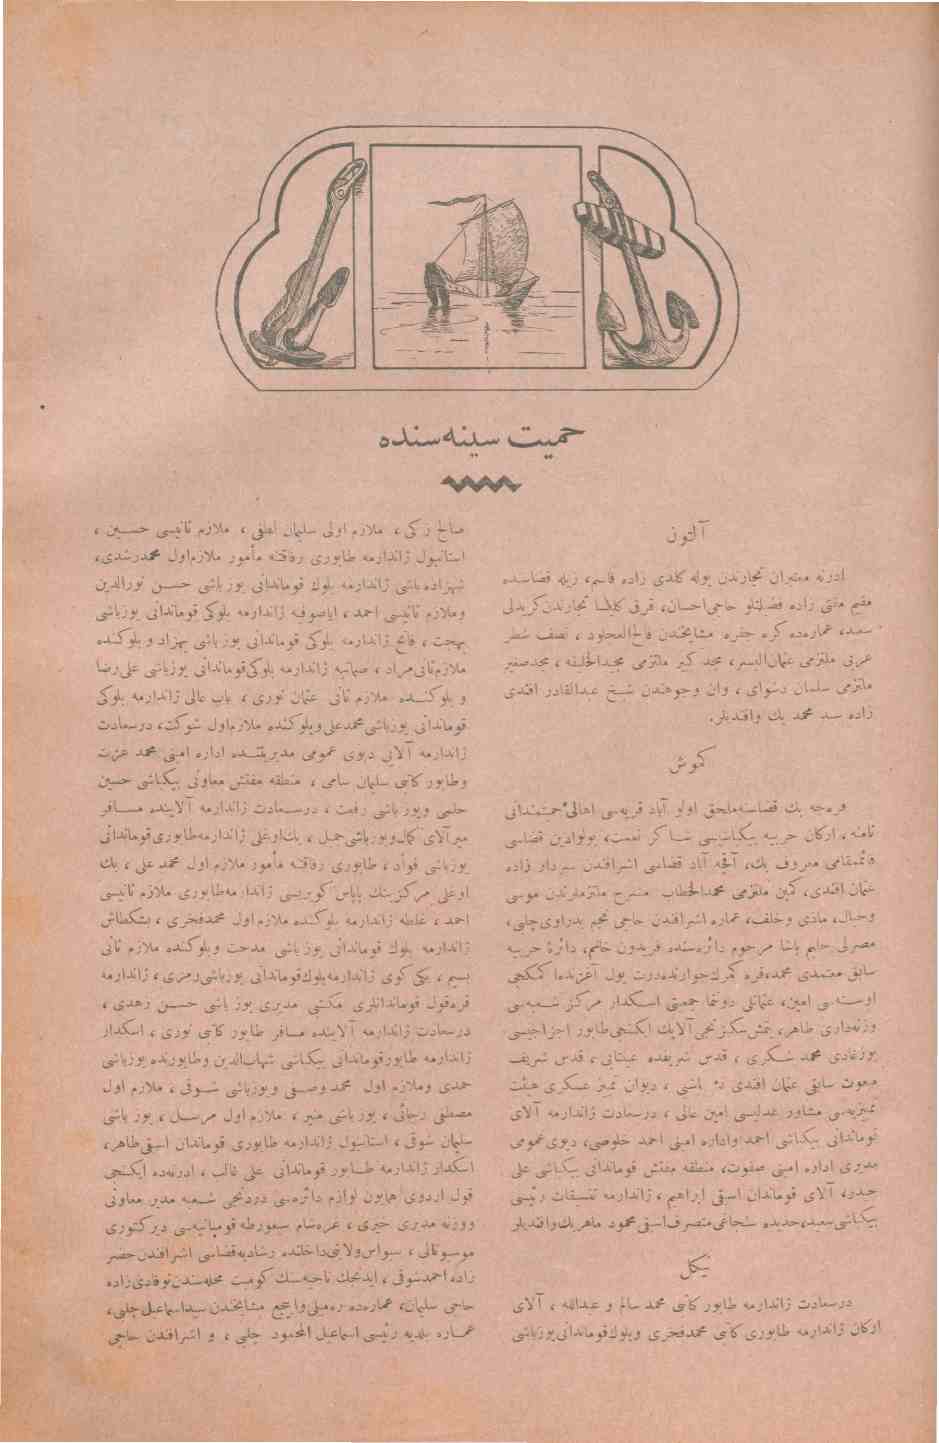 حمیت سینه‌سنده
آلتون
ادرنه معتبران تجارندن بوله کلدی زاده قاسم، زیله قضاسنده
مقیم مفتی زاده فضیلتلو حاجی احسان، قرقی کلیسا تجارندن کریدلی
سعید، عماره‌ده کره جفره مشایخندن فالح‌المحلود، نصف شطر
عربی ملتزمی عثمان‌الیسر، مجد کبیر ملتزمی مجیدالخلیفه، مجدصغیر
ملتزمی سلمان رشوای، وان وجوهندن شیخ عبدالقادر افندی
زاده سید محمد بك وافندیلر.
کموش
قره‌جه بك قضاسنه‌ملحق اولو آباد قریه‌سی اهالیٔ حمیتمندانی
نامنه، ارکان حربیه بیکباشیسی شاکر نعمت، بولوادین قضاسی
قائمقامی معروف بك، آقچه آباد قضاسی اشرافندن سردار زاده
عثمان افندی، کمین ملتزمی محمدالخطاب منسرح ملتزملرندن موسی
وخیال، ماذی وخلف، عماره اشرافندن حاجی نجم بدراوی‌چلبی،
مصرلی حلیم پاشا مرحوم دائره‌سنده فریدون خانم، دائرهٔ حربیه
سابق معتمدی محمده‌قره کمرك‌جوارنده‌درت یول آغزنده‌اکمکجی
اوسته‌سی امین، عثمانلی دونما جمعیتی اسکدار مرکز شعبه‌سی
وزنه‌داری طاهر، یتمش‌سکزنجی‌آلایك ایکنجی‌طابور اجزاجیسی
یوزغادی محمد شکری، قدس شریفده عینتابی، قدس شریف
مبعوث سابقی عثمان افندی باشی، دیوان تمییز عسکری هیئت
تمییزیه‌سی مشاور عدلیسی امین عالی، درسعادت ژاندارمه آلای
قوماندانی بیکباشی احمد واداره امینی احمد خلوصی، دیوی‌عمومی
مدیری اداره امینی صفوت، منطقه مفتش قوماندانی بیکباشی علی
حیدر، آلای قوماندان اسبقی ابراهیم، ژاندارمه تنسیقات رئیسی
بیکباشی‌سعید، حدیده سنجاغی‌متصرف‌اسبقی محمود ماهر بك‌وافندیلر
نیکل
درسعادت ژاندارمه طابور کاتبی محمد سالم و عبدالله، آلای
ارکان ژاندارمه طابوری کاتبی محمدفخری وبلوك‌قوماندانی‌یوزباشی
صالح زکی، ملازم اولی سلیمان لطفی، ملازم ثانیسی حسین،
استانبول ژاندارمه طابوری رفاقتنه مأمور ملازم‌اول محمدرشدی،
شهزاده‌باشی ژاندارمه بلوك قوماندانی یوزباشی حسن نورالدین
وملازم ثانیسی احمد، ایاصوفیه ژاندارمه بلوکی قوماندانی یوزباشی
بهجت، فاتح ژاندارمه بلوکی قوماندانی یوزباشی بهزاد و بلوکنده
ملازم‌ثانی‌مراد، صمانیه ژاندارمه بلوکی‌قوماندانی یوزباشی علی‌رضا
و بلوکنده ملازم ثانی عثمان نوری، باب عالی ژاندارمه بلوکی
قوماندانی یوزباشی‌محمدعلی‌وبلوکنده ملازم‌اول شوکت، درسعادت
ژاندارمه آلایی دیوی عمومی مدیریتنده اداره امینی محمد عزت
وطابور کاتبی سلیمان سامی، منطقه مفتش معاونی بیکباشی حسین
حلمی ویوزباشی رفعت، درسعادت ژاندارمه آلاینده مسافر
میرآلای کمال‌ویوزباشی‌جمیل، بك‌اوغلی ژاندارمه‌طابوری‌قوماندانی
یوزباشی فواد، طابوری رفاقتنه مأمور ملازم اول محمد علی، بك
اوغلی مرکزینك پاپاس کوپریسی ژاندارمه‌طابوری ملازم ثانیسی
احمد، غلطه ژاندارمه بلوکنده ملازم‌اول محمدفخری، بشکطاش
ژاندارمه بلوك قوماندانی یوزباشی مدحت وبلوکنده ملازم ثانی
بسیم، یکی کوی ژاندارمه‌بلوك‌قوماندانی یوزباشی‌رمزی، ژاندارمه
قره‌قول قوماندانلری مکتبی مدیری یوزباشی حسن زهدی،
درسعادت ژاندارمه آلاینده مسافر طابور کاتبی نوری، اسکدار
ژاندارمه طابورقوماندانی بیکباشی شهاب‌الدین وطابورنده یوزباشی
حمدی وملازم اول محمد وصفی ویوزباشی شوقی، ملازم اول
مصطفی رجائی، یوزباشی منیر، ملازم اول مرسل، یوزباشی
سلیمان شوقی، استانبول ژاندارمه طابوری قوماندان اسبقی‌طاهر،
اسکدار ژاندارمه طابور قوماندانی علی غالب، ادرنه‌ده ایکنجی
قول اردوی همایون لوازم دائره‌سی دردنجی شعبه مدیر معاونی
ووزنه مدیری خیری، غره‌شام سیغورطه قومپانیه‌سی دیرکتوری
موسیوتالی، سیواس‌ولایتی‌داخلنده رشادیه‌قضاسی اشرافندن‌خضر
زاده احمدشوقی، ایدنجك ناحیه‌سنك کومیت محله‌سندن‌نوقادی‌زاده
حاجی سلیمان، عماره‌ده مشایخندن سیداسماعیل‌چلبی،
عماره بلدیه رئیسی اسماعیل المحمود چلبی، و اشرافندن حاجی